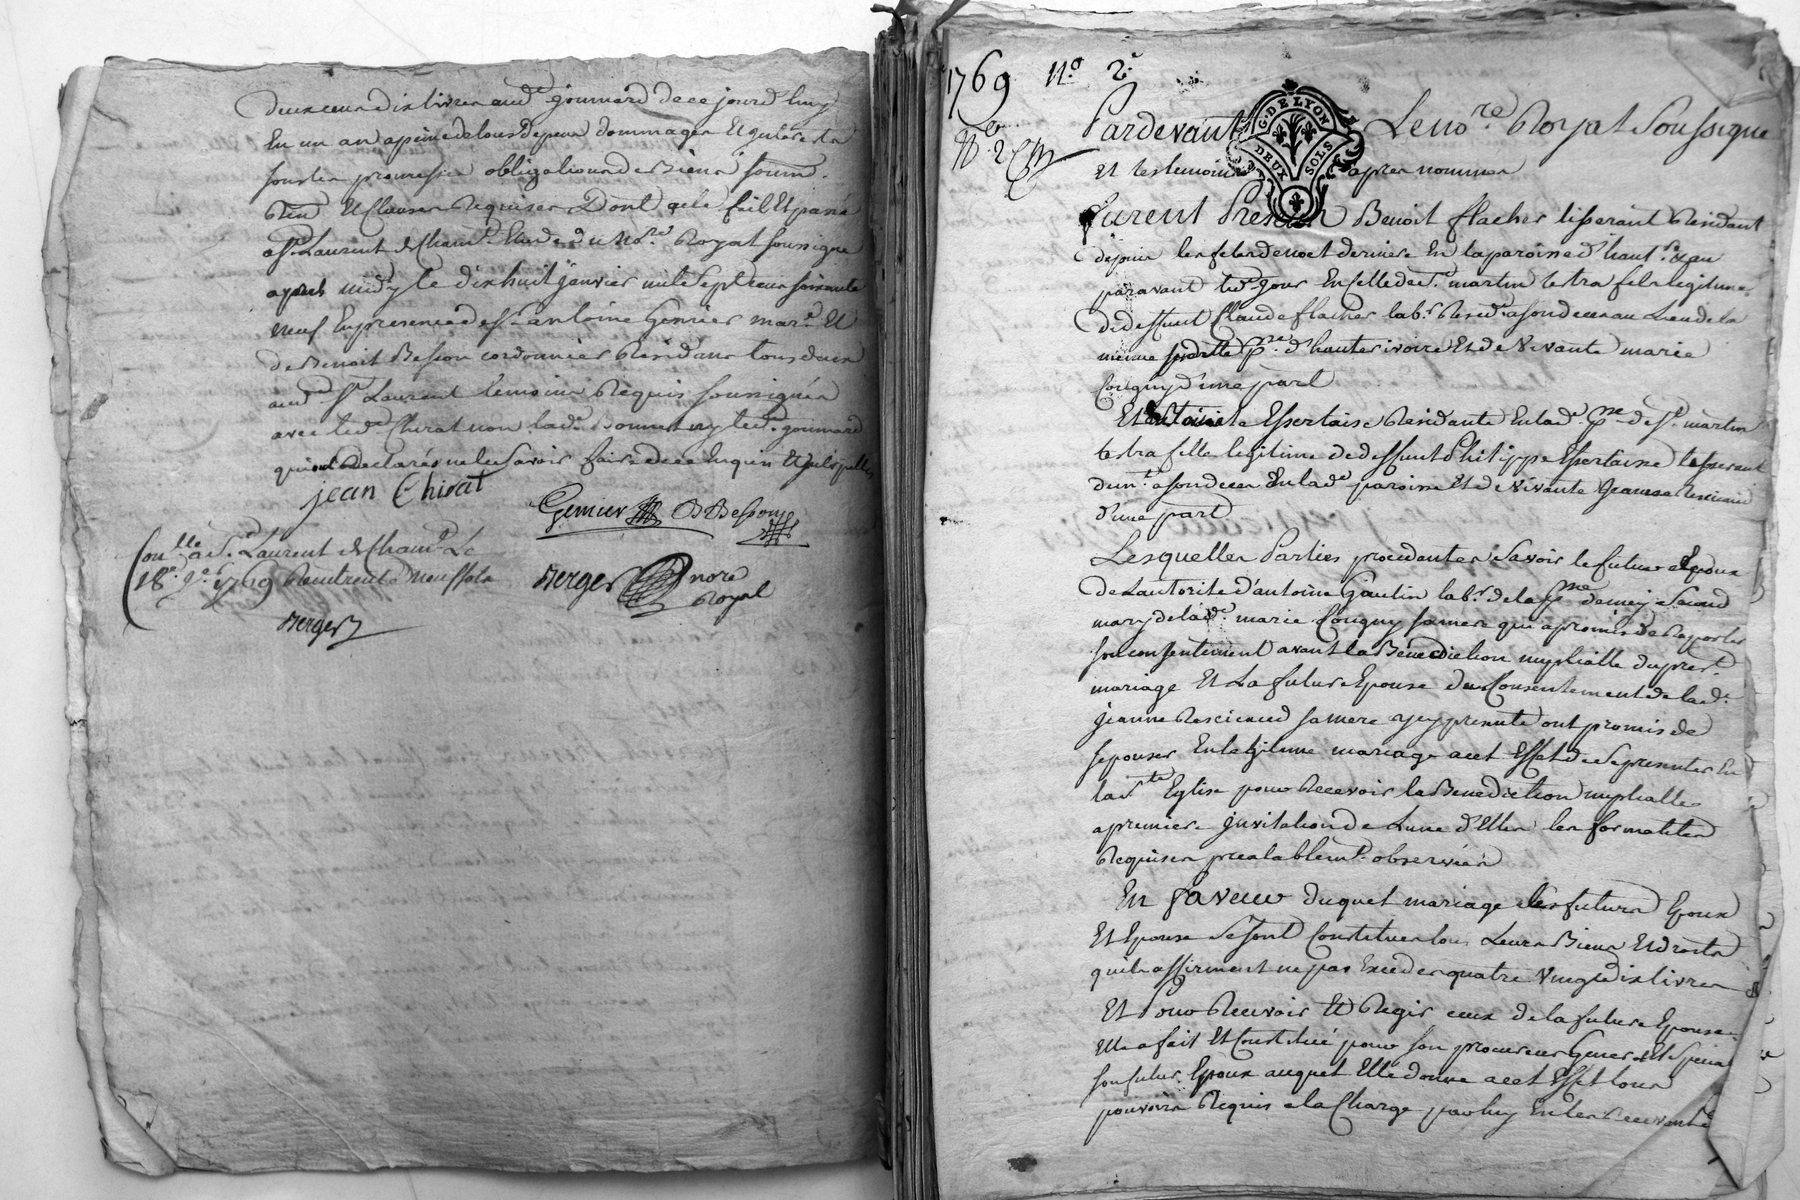 deux cent dix livres aud. gounard de ce jourd'huy
En un an a peine de tous depens dommages Et
sous les promesses obligations de Biens soum.
Ren. Et Clauses Requises Dont acte fait Et passé
a St. Laurent de Cham. Etude du No.re Royal soussigné
apres midy le dixhuit janvier mil sept cent soixante
neuf En presence de sr. antoine Genier mar.d Et
de Benoit Besson cordonnier Residans tous deux
aud. St. Laurent temoins Requis soussignés
avec led. Chirat non lad. ny led. gounard
qui ont Declarés ne le savoir faire de ce Enquis Et
jean Chirat
Genier B Besson
Con.lle a St. Laurent de Cham. Le
18e. 1769 Reçu treize sols
Berger
Berger nore Royal
1769 No. 2e
Pardevant Le no.re Royal Soussigné
G. DE LYON
DEUX SOLS
Et les temoins apres nommés
furent Presens Benoit flacher tisserant Residant
depuis les fetes de noel dernier En la paroisse d'haut.
paravant led. jour En celle de St. martin lestra fils legitime
de deffunt Claude flacher lab.r Resid. a son deces au Lieu de la
meme p.sse d'hauterivoire Et de Vivante marie
Cougny d'une part
Et antoinete Essertaise Residante En lad. p.sse de St. martin
lestra fille legitime de deffunt Philippe Essertaise tisserant
dem.t a son deces En lad. paroisse Et de Vivante jeanne
d'une part
Lesquelles Parties procedantes savoir le futur Epoux
de L'autorité d'antoine Gaulin lab.r de la p.sse de second
mary de lad. marie Cougny sa mere qui a promis de Raporter
son consentement avant la Benediction nuptialle du pres.t
mariage Et La future Epouse du Consentement de lad.
jeanne sa mere icy presente ont promis de
s'epouser En legitime mariage a cet Effet de se presenter En
la s.te Eglise pour Recevoir la Benediction nuptialle
a premiere jnvitation de L'une d'Elles les formalités
Requises prealablem.t observées
En faveur duquel mariage les futurs Epoux
Et Epouse se sont Constitués tous Leurs Biens Et droits
qu'ils affirment ne pas Exceder quatre vingt dix livres
Et Pour Recevoir Et Regir ceux de la future Epouse
Elle a fait Et Constitué pour son procureur General Et special
son futur Epoux auquel Elle donne a cet Effet tous
pouvoirs Requis a la Charge par luy En les Recevant